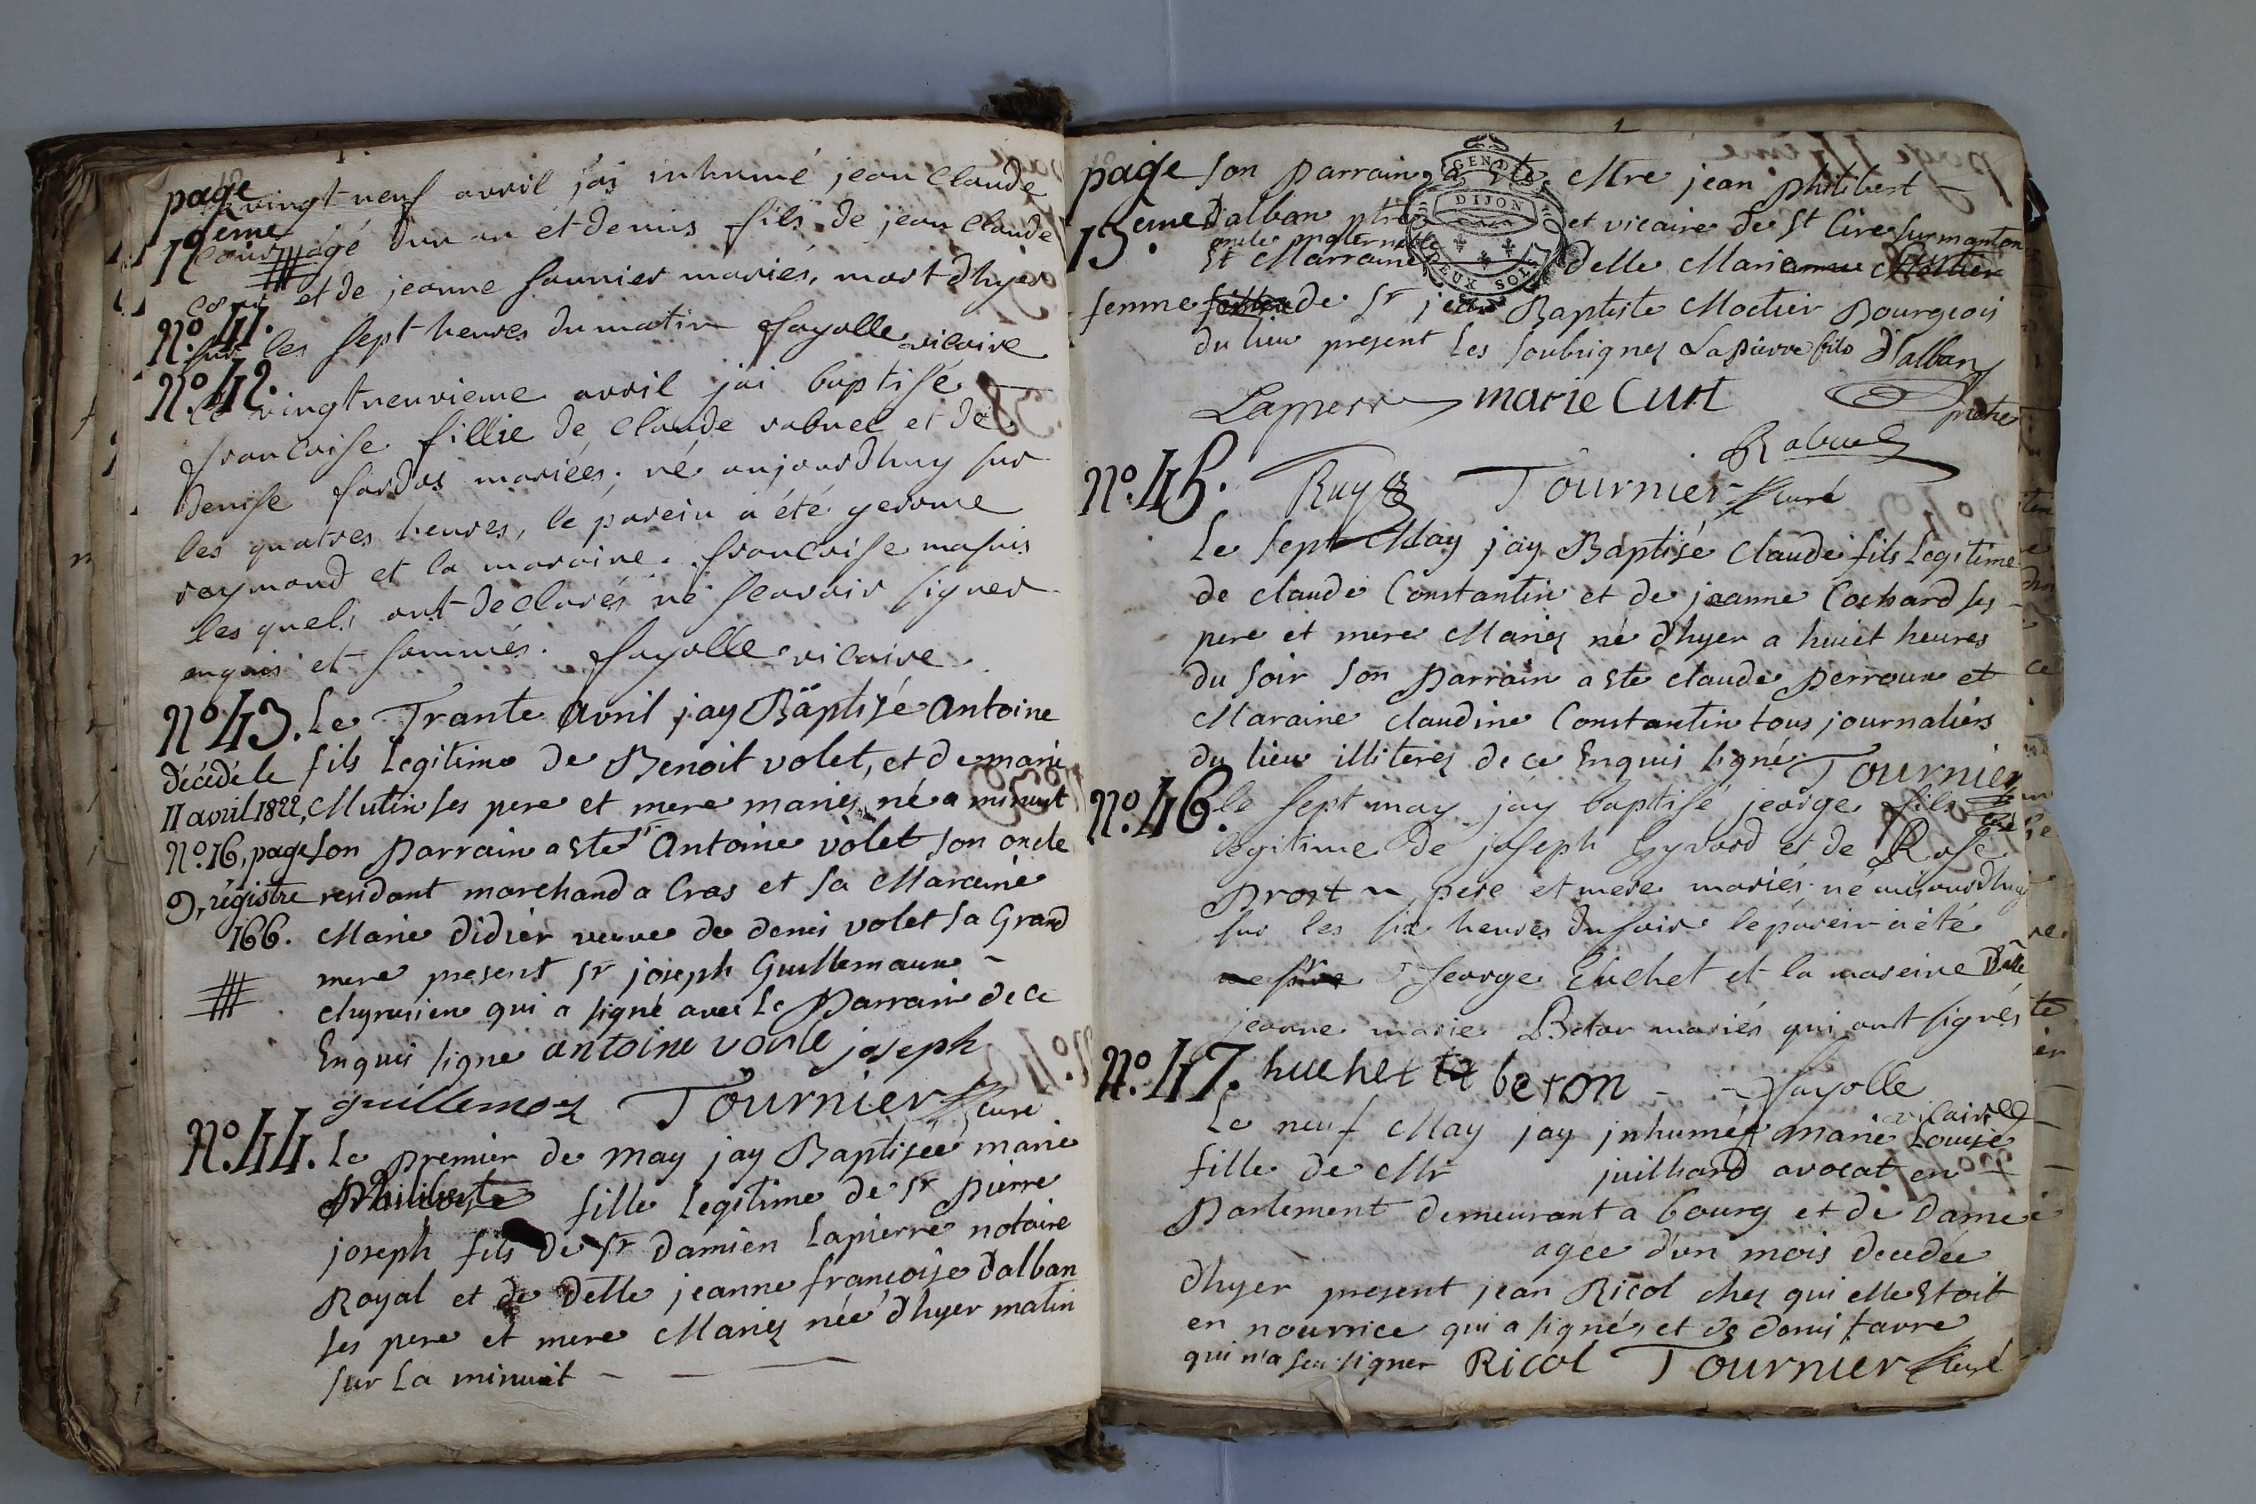 page
vingt neuf avril j'ai inhumé jean claude
12eme
agé d'un an et demis fils de jean claude
et de jeanne saunier mariés, mort d'hyer
No. 41.
sur les sept heures du matin fayolle vicaire
No. 42.
le vingt neuvieme avril jai baptisé
francoise fillie de claude rabuel et de
denise fardas mariées, né aujourdhuy sur
les quatres heures, le parein a été gerome
raymond et la maraine francoise
les quels ont declarés ne scavoir signer
enquis et sommés. fayolle vicaire.
No 43. Le Trante Avril jay Baptisé Antoine
décédé le fils Legitime de Benoit volet, et de marie
11 avril 1822, Mutin ses pere et mere mariez né a minuit
No. 16, page son Parrain a Ete Sr Antoine volet son oncle
9, régistre residant marchand a Cras et sa Maraine
166. Marie Didier veuve de denis volet sa Grand
mere present Sr joseph Guillemaun
chyrurien qui a signé avec Le Parrain de ce
Enquis signe antoine volle joseph
guillemoz Tournier Curé
No. 44. Le premier de may jay Baptisée marie
Philiberte fille Legitime de Sr Pierre
joseph fils de Sr Damien Lapierre notaire
Royal et de Delle jeanne françoise dalban
ses pere et mere Mariez née d'hyer matin
sur La minuit
page son Parrain a Ete Mre jean Philibert
13.eme dalban ptre et vicaire de St Cire sur manton
oncle maternelle
GEND DIJON DEUX SOLS
Et Marraine Delle Marianne Moitier
femme de Sr jean Baptiste Moitier Bourgeois
du lieu present Les soubsignez Lapierre fils D'alban
Lapierre marie Curt pretre
Rabuel
No. 45. Ruy Tournier Curé
Le sept May jay Baptisé Claude fils Legitime
de claude Constantin et de jeanne Cochard ses
pere et mere Mariez né d'hyer a huict heures
du soir son Parrain a Ete claude Perroux et
Maraine claudine Constantin tous journaliers
du lieu illiterez de ce Enquis signé Tournier
curé
No. 46. le sept may jay baptisé jeorge fils
legitime de joseph Gyvord et de Rose
Prost pere et mere mariés né aujourdhuy
sur les six heures du soir le parein a été
Sr George huchet et la mareine Delle
jeanne marie Beton mariés qui ont signés
No. 47. huchet beton fayolle
vicaire
Le neuf May jay jnhumée marie Louise
fille de Mr juilhard avocat en
Parlement demeurant a bourg et de dame
agée d'un mois decedée
d'hyer present jean Ricol chez qui elle Etoit
en nourrice qui a signé, et de denis favre
qui n'a seu signer Ricol Tournier Curé